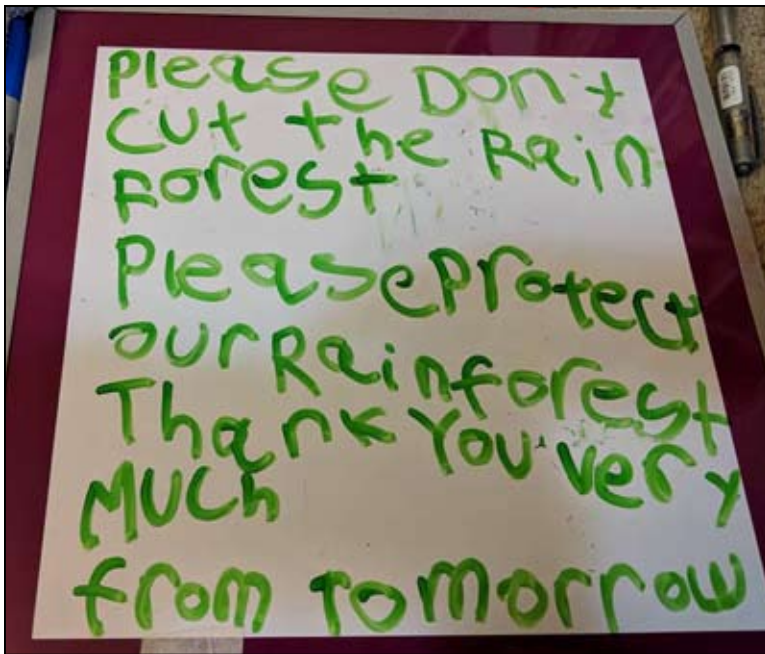 Please Don't
cut the Rain
Forest
Please protect
our Rainforest
Thank You very
Much
from Tomorrow